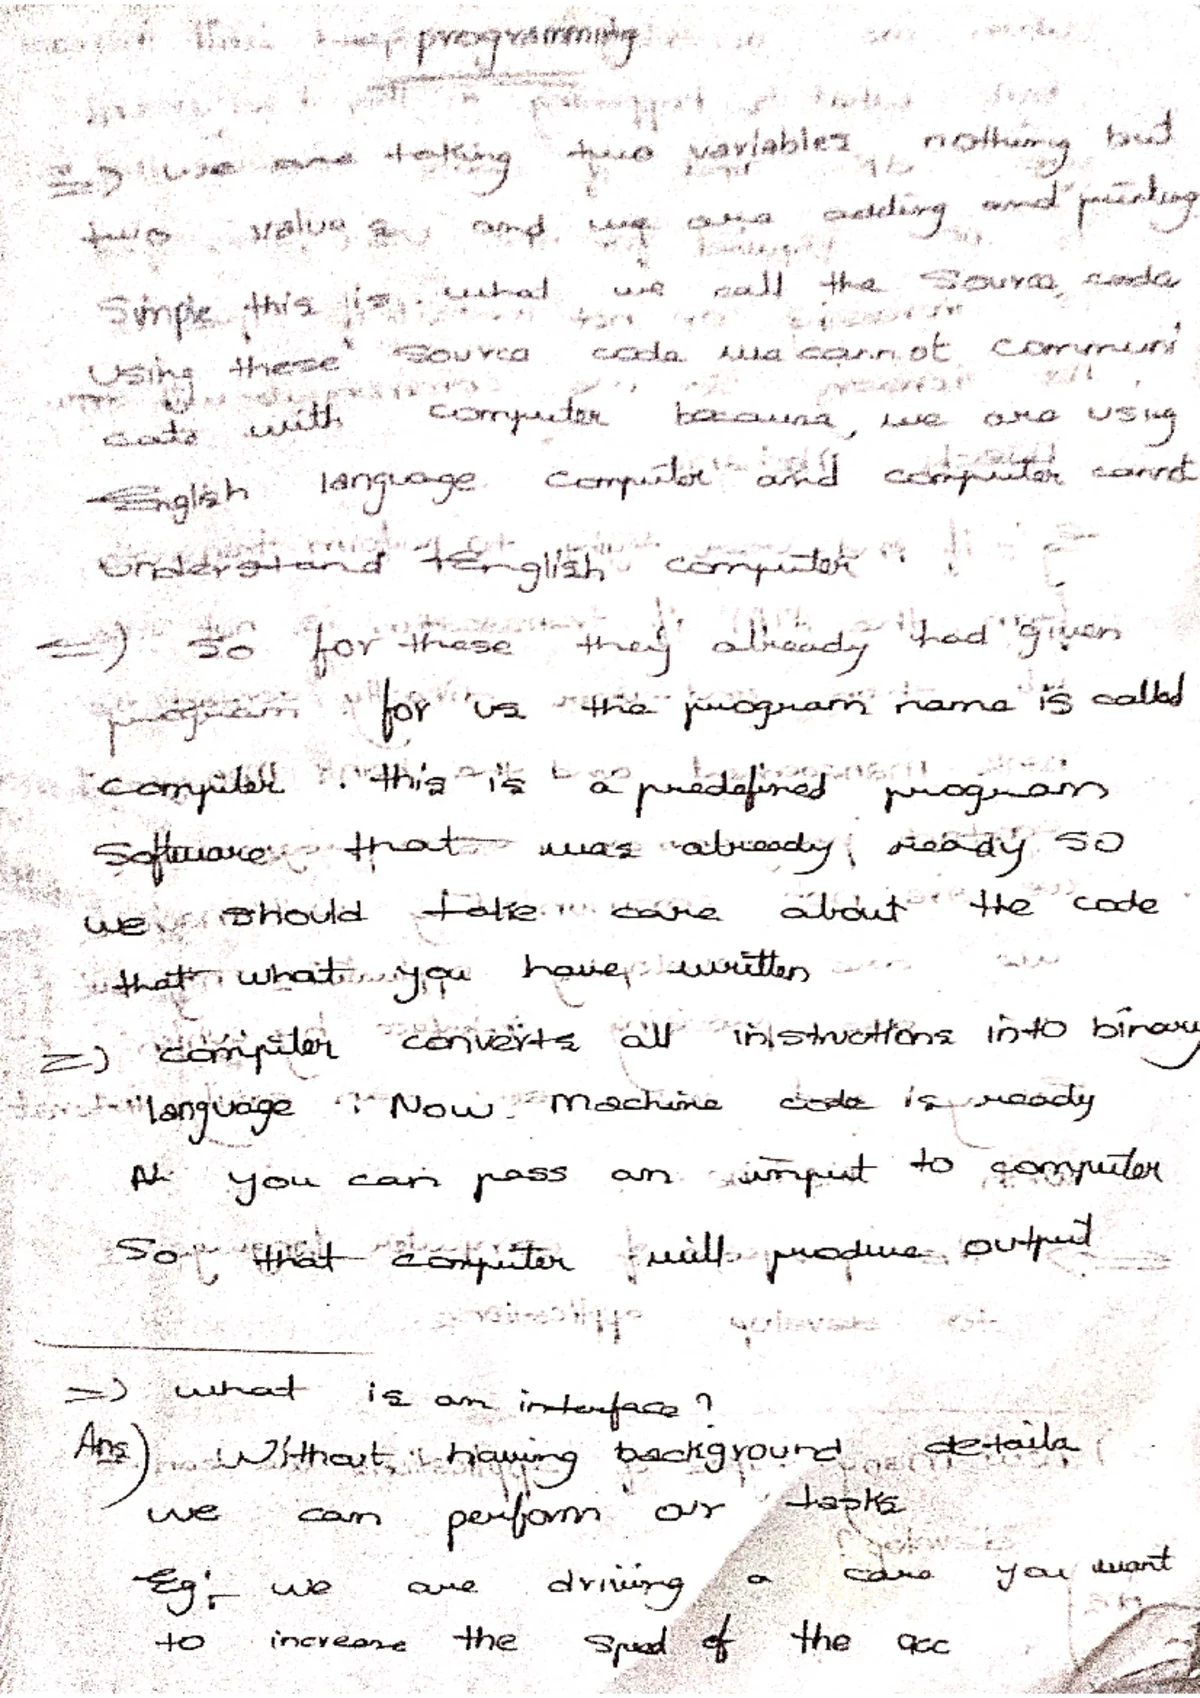 programming
=> we are taking two variables nothing but
two values, and we are adding and printing
Simple this is what we call the source code
Using these source code we cannot communi
cate with computer because, we are using
English language computer and computer cannot
Understand English computer.
=> So for these they already had given
program for us the program name is called
compiler. this is a predefined program
Software that was already ready so
we should take care about the code
that what you have written
=> compiler converts all instructions into binary
language. Now Machine code is ready
you can pass an input to computer
So that computer will produce output
=> what is an interface?
Ans) Without having background details
we can perform our tasks
Eg:- we are driving a care you want
to increase the speed of the acc